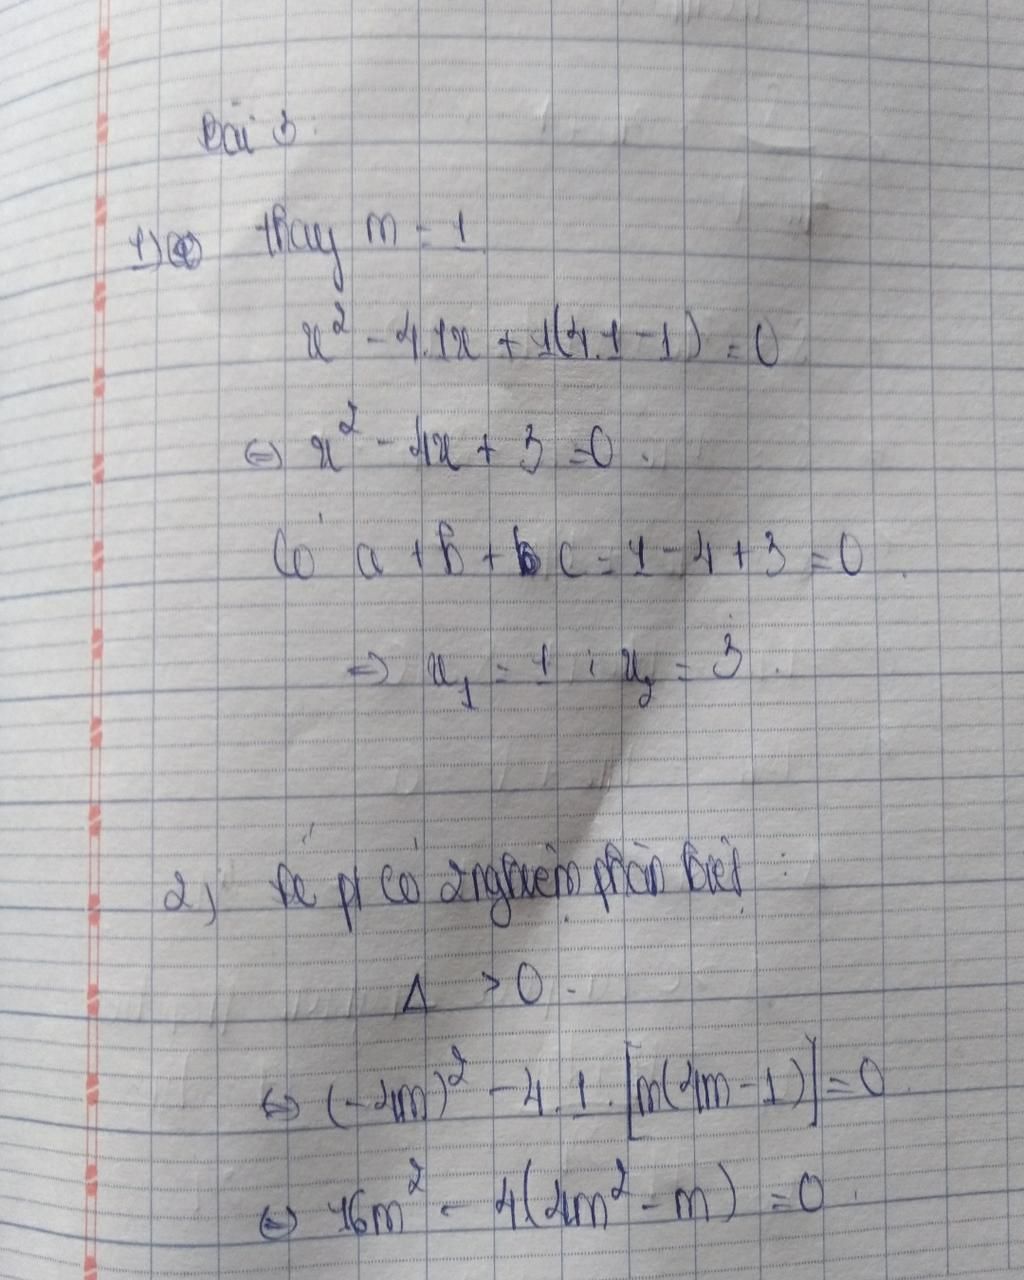 Bài 3
1) thay m = 1
x² - 4.1x + 1(4.1 - 1) = 0
⇔ x² - 4x + 3 = 0.
Có a + b + c = 1 - 4 + 3 = 0.
⇒ x₁ = 1 ; x₂ = 3.
2) Để pt có 2 nghiệm phân biệt :
Δ > 0.
⇔ (-4m)² - 4.1.[m(4m - 1)] = 0
⇔ 16m² - 4(4m² - m) = 0.